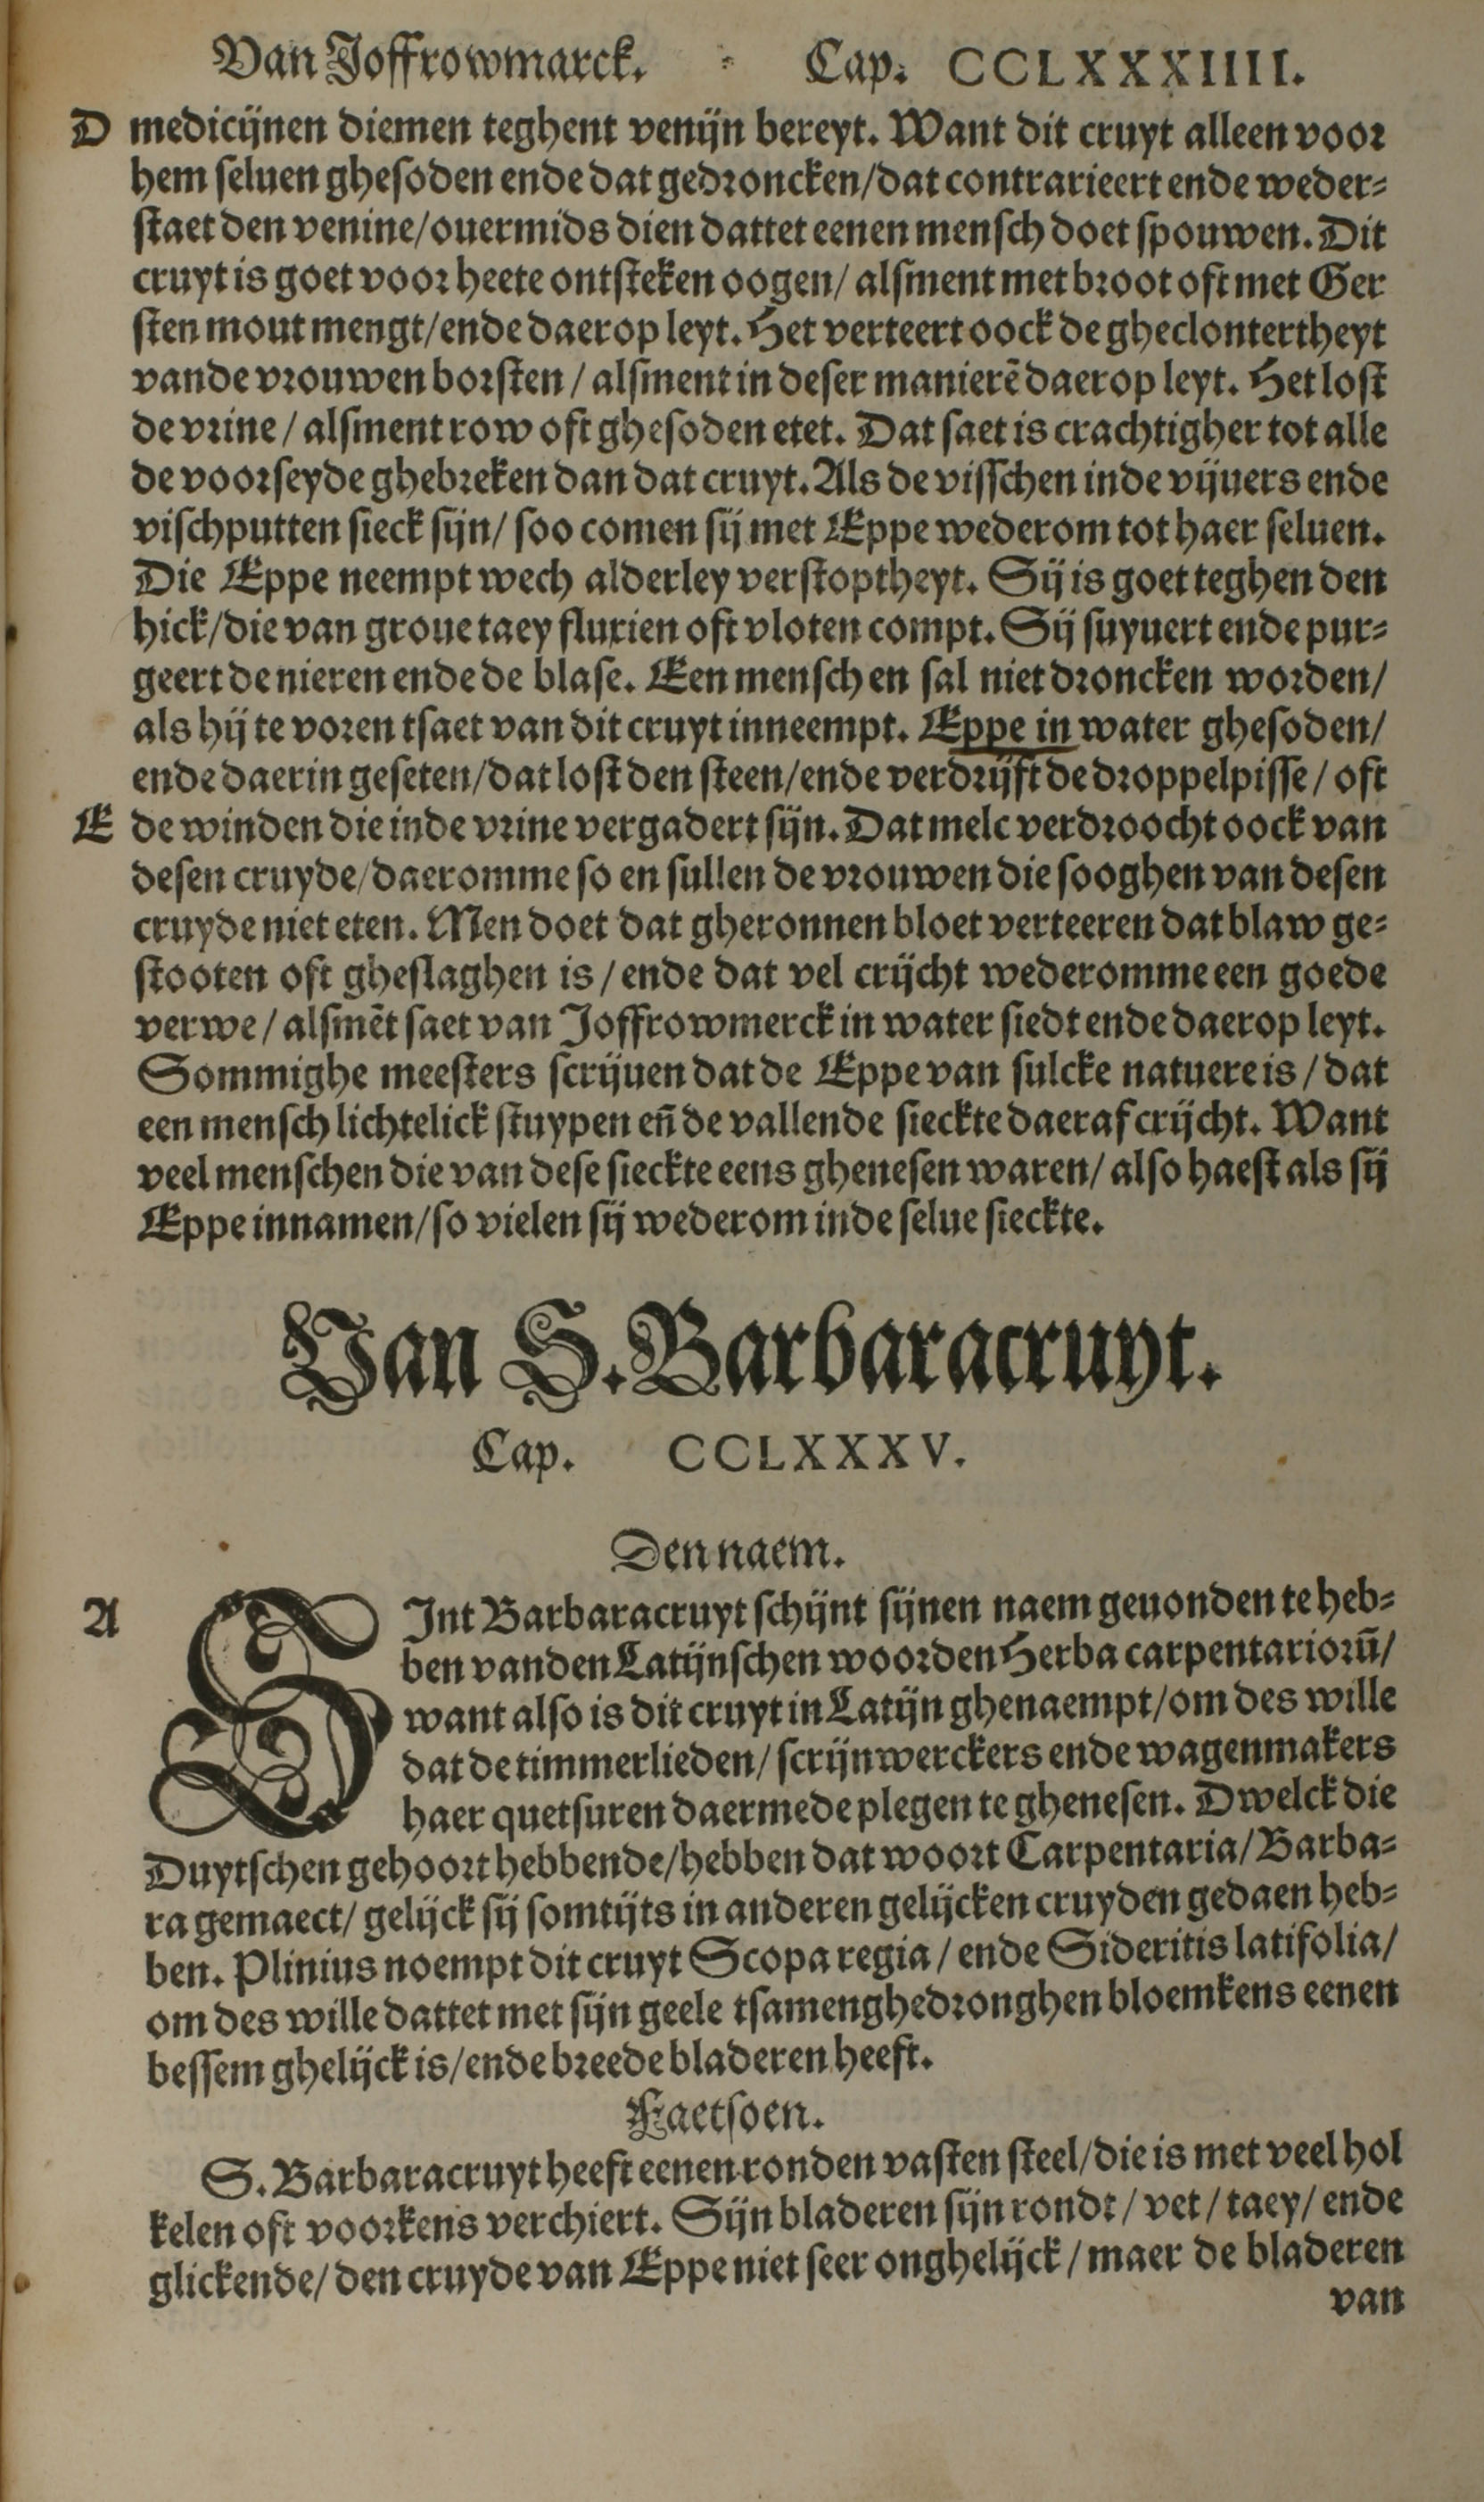 Van Joffrowmarck. Cap. CCLXXXIIII.
D medicijnen diemen teghent venijn bereyt. Want dit cruyt alleen voor
hem seluen ghesoden ende dat gedroncken/dat contrarieert ende weder-
staet den venine/ouermids dien dattet eenen mensch doet spouwen. Dit
cruyt is goet voor heete ontsteken oogen/ alsment met broot oft met Ger
sten mout mengt/ende daer op leyt. Het verteert oock de gheclontertheyt
vande vrouwen borsten/ alsment in deser manierē daer op leyt. Het lost
de vrine/ alsment row oft ghesoden etet. Dat saet is crachtigher tot alle
de voorseyde ghebreken dan dat cruyt. Als de visschen inde vijuers ende
vischputten sieck sijn/ soo comen sij met Eppe wederom tot haer seluen.
Die Eppe neempt wech alderley verstoptheyt. Sij is goet teghen den
hick/die van groue taey fluxien oft vloten compt. Sij suyuert ende pur-
geert de nieren ende de blase. Een mensch en sal niet droncken worden/
als hij te voren tsaet van dit cruyt inneempt. Eppe in water ghesoden/
ende daer in geseten/dat lost den steen/ende verdrijft de droppelpisse/ oft
E de winden die inde vrine vergadert sijn. Dat melc verdroocht oock van
desen cruyde/daeromme so en sullen de vrouwen die sooghen van desen
cruyde niet eten. Men doet dat gheronnen bloet verteeren dat blaw ge-
stooten oft gheslaghen is/ ende dat vel crijcht wederomme een goede
verwe/ alsmēt saet van Joffrowmerck in water siedt ende daer op leyt.
Sommighe meesters scrijuen dat de Eppe van sulcke natuere is/ dat
een mensch lichtelick stuypen en̄ de vallende sieckte daer af crijcht. Want
veel menschen die van dese sieckte eens ghenesen waren/ also haest als sij
Eppe innamen/so vielen sij wederom inde selue sieckte.
Van S. Barbaracruyt.
Cap. CCLXXXV.
Den naem.
A SInt Barbaracruyt schijnt sijnen naem geuonden te heb-
ben vanden Latijnschen woorden Herba carpentariorū/
want also is dit cruyt in Latijn ghenaempt/om des wille
dat de timmerlieden/ scrijnwerckers ende wagenmakers
haer quetsuren daermede plegen te ghenesen. Dwelck die
Duytschen gehoort hebbende/hebben dat woort Carpentaria/Barba-
ra gemaect/ gelijck sij somtijts in anderen gelijcken cruyden gedaen heb-
ben. Plinius noempt dit cruyt Scopa regia/ ende Sideritis latifolia/
om des wille dattet met sijn geele tsamenghedronghen bloemkens eenen
bessem ghelijck is/ende breede bladeren heeft.
Faetsoen.
S. Barbaracruyt heeft eenen ronden vasten steel/die is met veel hol
kelen oft voorkens verchiert. Sijn bladeren sijn rondt/ vet/ taey/ ende
glickende/ den cruyde van Eppe niet seer onghelijck/ maer de bladeren
van